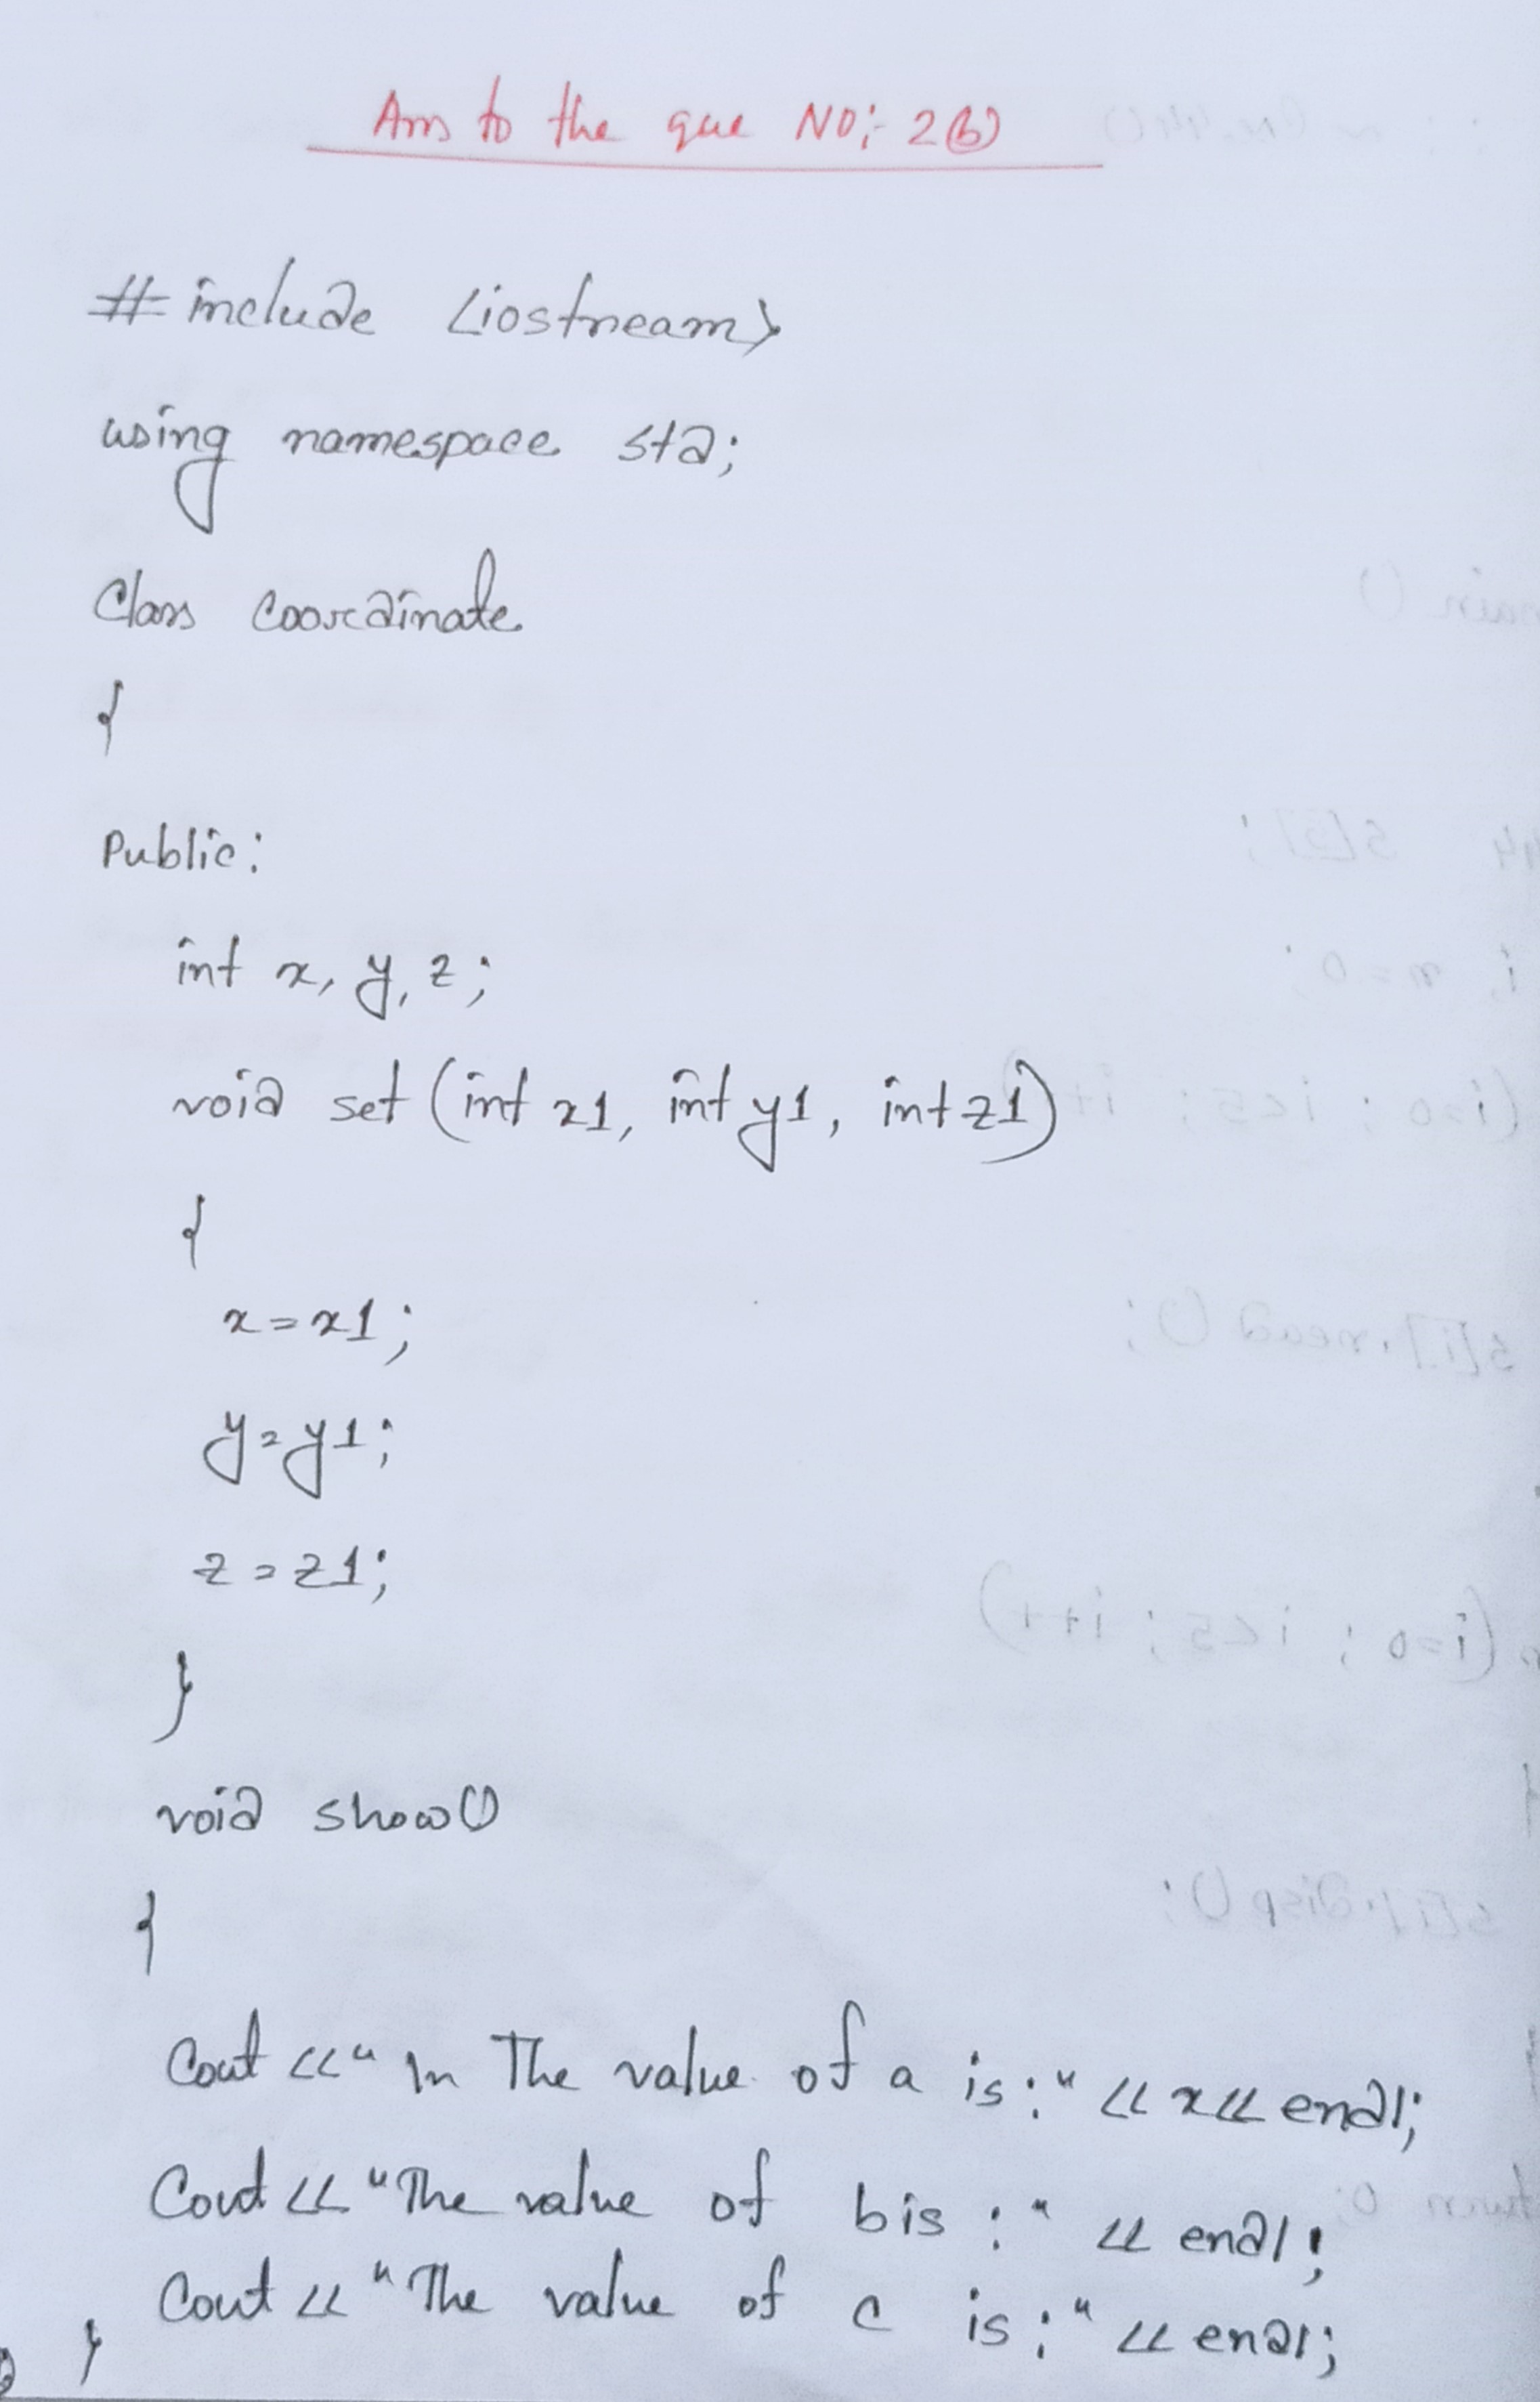 Ans to the que NO:- 2(b)
# include <iostream>
using namespace std;
Class Coordinate
{
Public:
int x, y, z;
void set (int x1, int y1, int z1)
{
x = x1;
y = y1;
z = z1;
}
void show()
{
Cout <<" \n The value of a is:" << x << endl;
Cout << "The value of b is :" << endl;
Cout << "The value of c is :" << endl;
}